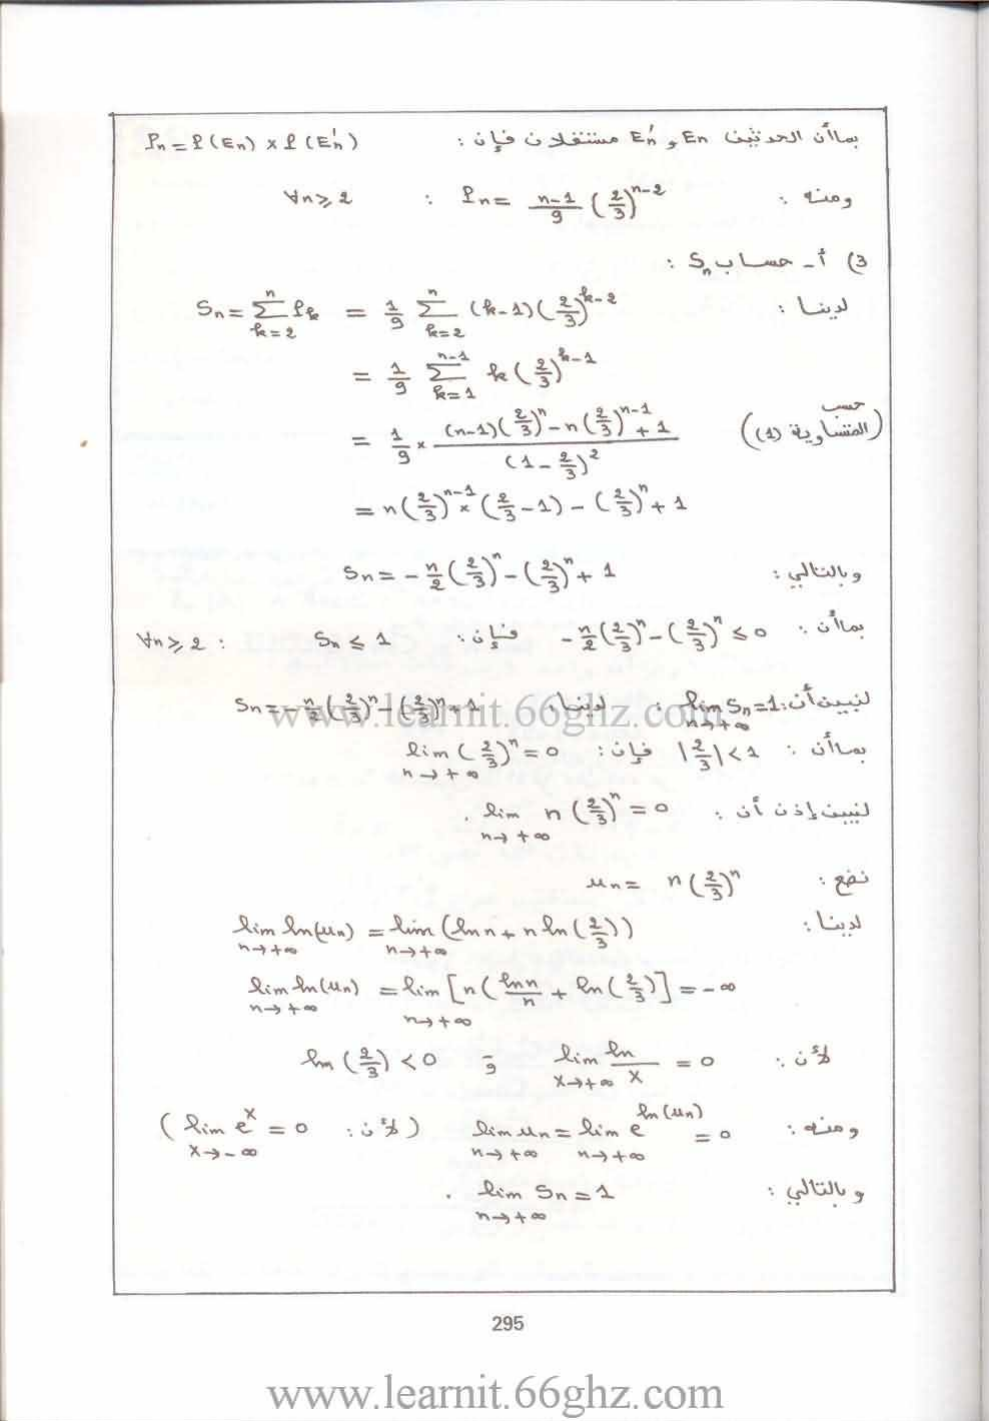 بما أن الحدثين En و E'n مستقلان فإن : Pn = P(En) × P(E'n)
ومنه : Pn = \frac{n-1}{9} (\frac{2}{3})^{n-2} : ∀n ≥ 2
3) أ - حساب Sn :
لدينا : Sn = \sum_{k=2}^{n} Pk = \frac{1}{9} \sum_{k=2}^{n} (k-1)(\frac{2}{3})^{k-2}
= \frac{1}{9} \sum_{k=1}^{n-1} k(\frac{2}{3})^{k-1}
= \frac{1}{9} × \frac{(n-1)(\frac{2}{3})^{n} - n(\frac{2}{3})^{n-1} + 1}{(1-\frac{2}{3})^{2}} (حسب المتساوية (1))
= n(\frac{2}{3})^{n-1} × (\frac{2}{3} - 1) - (\frac{2}{3})^{n} + 1
وبالتالي : Sn = -\frac{n}{2}(\frac{2}{3})^{n} - (\frac{2}{3})^{n} + 1
بما أن : -\frac{n}{2}(\frac{2}{3})^{n} - (\frac{2}{3})^{n} ≤ 0 فإن : Sn ≤ 1 : ∀n ≥ 2
لنبين أن : \lim_{n→+∞} Sn = 1 : لدينا : Sn = -\frac{n}{2}(\frac{2}{3})^{n} - (\frac{2}{3})^{n} + 1
www.learnit.66ghz.com
بما أن : |\frac{2}{3}| < 1 فإن : \lim_{n→+∞} (\frac{2}{3})^{n} = 0
لنبين إذن أن : \lim_{n→+∞} n(\frac{2}{3})^{n} = 0 .
نضع : un = n(\frac{2}{3})^{n}
لدينا : \lim_{n→+∞} ln(un) = \lim_{n→+∞} (ln n + n ln(\frac{2}{3}))
\lim_{n→+∞} ln(un) = \lim_{n→+∞} [n(\frac{ln n}{n} + ln(\frac{2}{3})] = -∞
لأن : \lim_{x→+∞} \frac{ln}{x} = 0 و ln(\frac{2}{3}) < 0
ومنه : \lim_{n→+∞} un = \lim_{n→+∞} e^{ln(un)} = 0 (لأن : \lim_{x→-∞} e^{x} = 0)
وبالتالي : \lim_{n→+∞} Sn = 1 .
295
www.learnit.66ghz.com